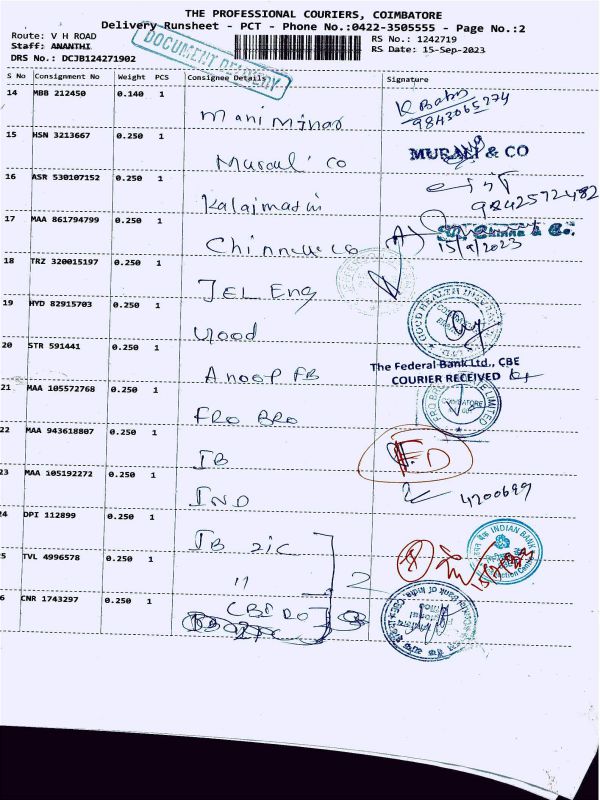 THE PROFESSIONAL COURIERS, COIMBATORE
Delivery Runsheet - PCT - Phone No.:0422-3505555 - Page No.:2
Route: V H ROAD
RS No.: 1242719
Staff: ANANTHI
RS Date: 15-Sep-2023
DRS No.: DCJB124271902
DOCUMENT DELIVERY
S No Consignment No Weight PCS Consignee Details Signature
14 MBB 212450 0.140 1
Mani Minar
K Babu
9843065274
15 HSN 3213667 0.250 1
Murali Co
MURALI & CO
16 ASR 530107152 0.250 1
Kalaimathi
9842572482
17 MAA 861794799 0.250 1
Chinna & Co
15/9/2023
18 TRZ 320015197 0.250 1
JEL Eng
19 HYD 82915703 0.250 1
Good
GOOD HEALTH
20 STR 591441 0.250 1
Anoop FB
The Federal Bank Ltd., CBE
COURIER RECEIVED
21 MAA 105572768 0.250 1
FRO BRO
COIMBATORE
22 MAA 943618807 0.250 1
IB
23 MAA 105192272 0.250 1
IND
4200699
24 DPI 112899 0.250 1
IB ZIC
INDIAN BANK
25 TVL 4996578 0.250 1
11
2
6 CNR 1743297 0.250 1
CBE RO
Bank of India